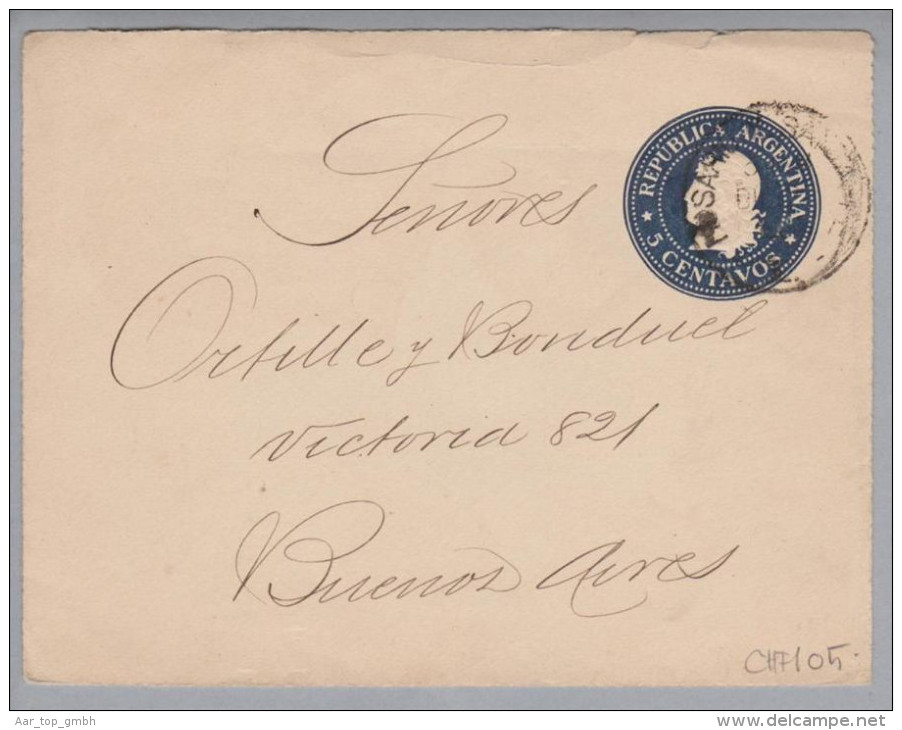 REPÚBLICA ARGENTINA
5 CENTAVOS
Señores
Ortille y Bonduel
Victoria 821
Buenos Aires
CHF 105.
Aar_top_gmbh
www.delcampe.net